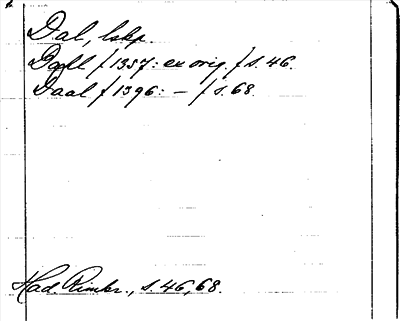 Dal, lskp.
Dadl /1357: ex orig./ s. 46.
Daal /1396: — / s. 68.
Had. Rimkr., s. 46, 68.